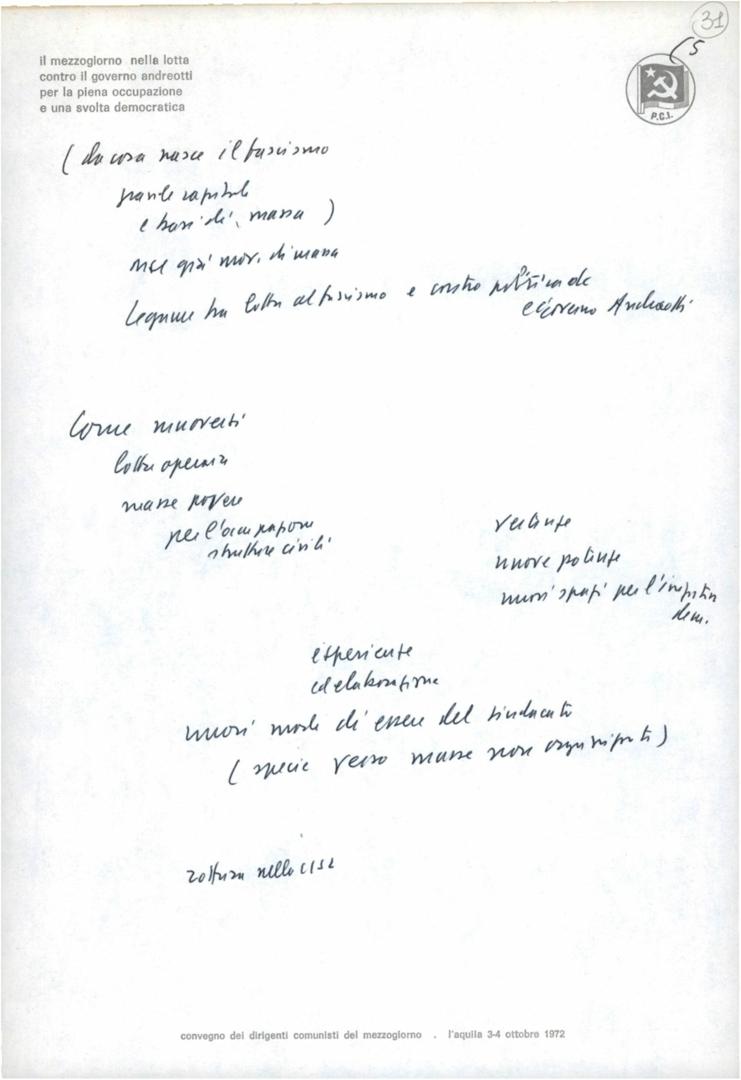 31
5
il mezzogiorno nella lotta
contro il governo andreotti
per la piena occupazione
e una svolta democratica
P.C.I.
( da cosa nasce il fascismo
grande capitale
e basi di massa )
nel già mov. di massa
legame tra lotta al fascismo e contro politica de
e Governo Andreotti
Come muoversi
lotta operaia
masse povere
per l'occupazione
strutture civili
vertenze
nuove potenze
nuovi spazi per l'
dem.
esperienze
ed elaborazione
nuovi modi di essere del sindacato
( specie verso masse non organizzate )
rottura nella CISL
convegno dei dirigenti comunisti del mezzogiorno . l'aquila 3-4 ottobre 1972